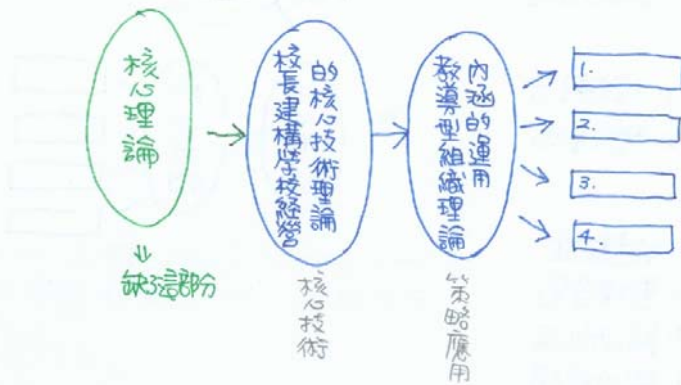 核心理論
缺了這部分
校長建構學校經營
的核心技術理論
核心技術
教導型組織理論
內涵的運用
策略應用
1.
2.
3.
4.